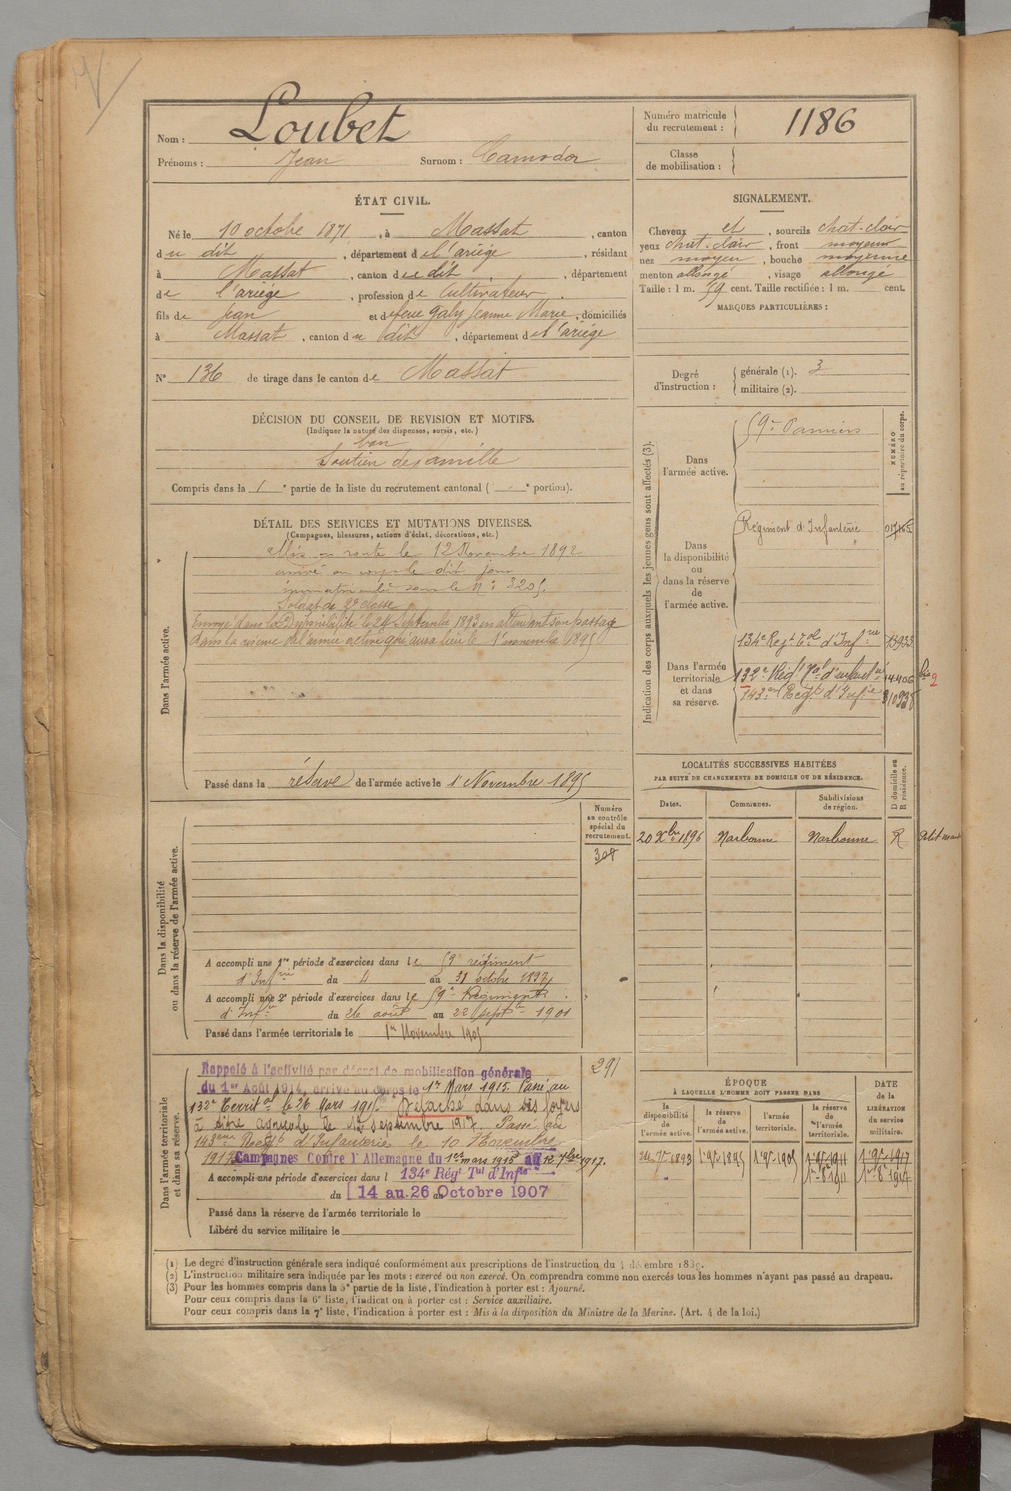 Nom : Loubet
Prénoms : Jean Surnom : Camodor
ÉTAT CIVIL.
Né le 10 octobre 1871, à Massat, canton
du dit, département de l'ariége, résidant
à Massat, canton du dit, département
de l'ariége, profession de Cultivateur
fils de Jean et de feue Galy Jeanne Marie, domiciliés
à Massat, canton du dit, département de l'ariége
N° 136 de tirage dans le canton de Massat
DÉCISION DU CONSEIL DE REVISION ET MOTIFS.
(Indiquer la nature des dispenses, sursis, etc.)
bon
Soutien de famille
Compris dans la 1e partie de la liste du recrutement cantonal ( e portion).
DÉTAIL DES SERVICES ET MUTATIONS DIVERSES.
(Campagnes, blessures, actions d'éclat, décorations, etc.)
Dans l'armée active.
Mis en route le 12 Novembre 1892
arrivé au corps le dit jour
immatriculé sous le N° 3205.
Soldat de 2e classe
Envoyé dans la Disponibilité le 24 Septembre 1893 en attendant son passage
dans la réserve de l'armée active qui aura lieu le 1er novembre 1895
Passé dans la réserve de l'armée active le 1 Novembre 1895
Dans la disponibilité
ou dans la réserve de l'armée active.
Numéro
au contrôle
spécial du
recrutement.
308
A accompli une 1re période d'exercices dans le 59e régiment
d'Infrie du 4 au 31 octobre 1897
A accompli une 2e période d'exercices dans le 59e Régiment
d'Infie du 26 août au 22 septbre 1901
Passé dans l'armée territoriale le 1er Novembre 1905
Dans l'armée territoriale
et dans sa réserve.
291
Rappelé à l'activité par décret de mobilisation générale
du 1er Août 1914, arrivé au corps le 1er Mars 1915. Passé au
132e Territal le 26 Mars 1915. Détaché dans ses foyers
à titre agricole le 12 septembre 1917. Passé au
143ème Regt d'Infanterie le 10 Novembre
1917. Campagnes Contre l'Allemagne du 1er mars 1915 au 12 7bre 1917.
A accompli une période d'exercices dans l 134e Régt Tal d'Infie
du 14 au 26 Octobre 1907
Passé dans la réserve de l'armée territoriale le
Libéré du service militaire le
Numéro matricule
du recrutement : 1186
Classe
de mobilisation :
SIGNALEMENT.
Cheveux et, sourcils chat-clair
yeux chat-clair, front moyen
nez moyen, bouche moyenne
menton allongé, visage allongé
Taille : 1 m. 59 cent. Taille rectifiée : 1 m. cent.
MARQUES PARTICULIÈRES :
Degré
d'instruction :
générale (1). 3
militaire (2).
Indication des corps auxquels les jeunes gens sont affectés (3).
NUMÉRO
au répertoire du corps.
Dans
l'armée active.
59e Pamiers
Dans
la disponibilité
ou
dans la réserve
de
l'armée active.
Régiment d'Infanterie
Dans l'armée
territoriale
et dans
sa réserve.
134e Regt Tal d'Infrie 13933
132e Régt Tal d'infanterie 14406 bis 2
143e Regt d'Infie
LOCALITÉS SUCCESSIVES HABITÉES
PAR SUITE DE CHANGEMENTS DE DOMICILE OU DE RÉSIDENCE.
Dates. Communes. Subdivisions
de région. D domicile ou
R résidence.
20 Xbre 1896 Narbonne Narbonne R
ÉPOQUE
À LAQUELLE L'HOMME DOIT PASSER DANS
DATE
de la
LIBÉRATION
du service
militaire.
la
disponibilité
de
l'armée active. la réserve
de
l'armée active. l'armée
territoriale. la réserve
de
l'armée
territoriale.
24 7e 1893 1er 9e 1895 1er 9e 1905 1er 9e 1911 1er 9e 1917
1er 8e 1911 1er 8e 1917
(1) Le degré d'instruction générale sera indiqué conformément aux prescriptions de l'instruction du 4 décembre 1889.
(2) L'instruction militaire sera indiquée par les mots : exercé ou non exercé. On comprendra comme non exercés tous les hommes n'ayant pas passé au drapeau.
(3) Pour les hommes compris dans la 5e partie de la liste, l'indication à porter est : Ajourné.
Pour ceux compris dans la 6e liste, l'indication à porter est : Service auxiliaire.
Pour ceux compris dans la 7e liste, l'indication à porter est : Mis à la disposition du Ministre de la Marine. (Art. 4 de la loi.)